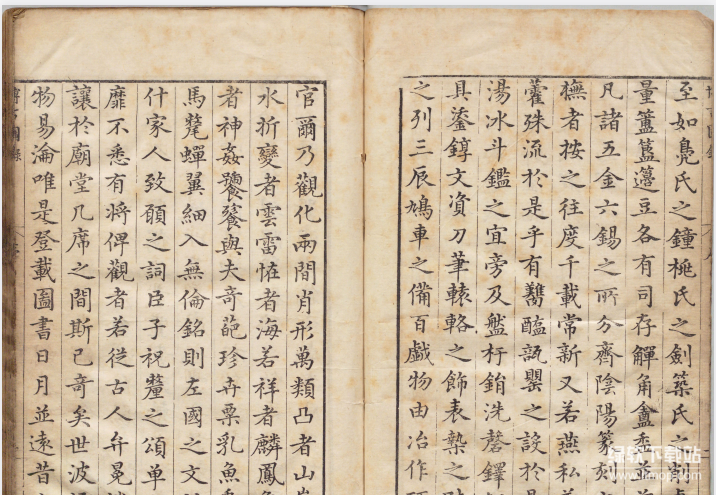 至如鳧氏之鐘桃氏之劍築氏之削
量簠簋籩豆各有司存觶角盦
凡諸五金六錫之所分齊陰陽篆刻
橅者按之往度千載常新又若燕私
藿殊流於是乎有鐎醢瓿罌之設於
湯冰斗鑑之宜旁及盤杅鋗洗磬鐸
具鋈錞文資刀筆轅輅之飾表埶之
之列三辰鳩車之備百戲物由冶作
官爾乃觀化兩間肖形萬類凸者山
水折變者雲雷恠者海若祥者麟鳳
者神姦饕餮與夫奇葩珍卉粟乳魚
馬氂蟬翼細入無倫銘則左國之文
什家人致願之詞臣子祝釐之頌單
靡不悉有將俾觀者若從古人弁冕
讓於廟堂几席之間斯已奇矣世波
物易淪唯是登載圖書日月並遠昔
博古圖錄
绿软下载站